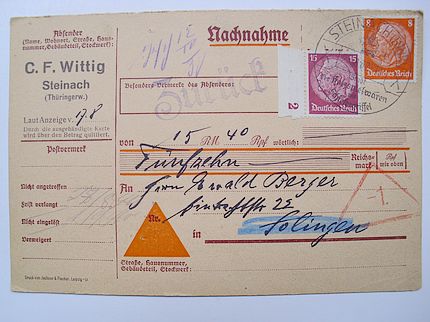 Absender
(Name, Wohnort, Straße, Haus-
nummer, Gebäudeteil, Stockwerk):
C. F. Wittig
Steinach
(Thüringerw.)
Laut Anzeige v. 1/8
Durch die ausgehändigte Karte
wird über den Betrag quittiert.
Postvermerk
Nicht angetroffen
Frist verlangt
Nicht eingelöst
Verweigert
Nachnahme
Besonders-Vermerke des Absenders:
Zurück
15
15
Deutsches Reich
2
8
8
Deutsches Reich
STEINACH
von 15 RM 40 Rpf wörtlich:
Fünfzehn
Reichs-
mark
Rpf
wie oben
An Herrn Ewald Berger
Eintrachtstr 22
Nr.
in Solingen
-1.
Straße, Hausnummer,
Gebäudeteil, Stockwerk: